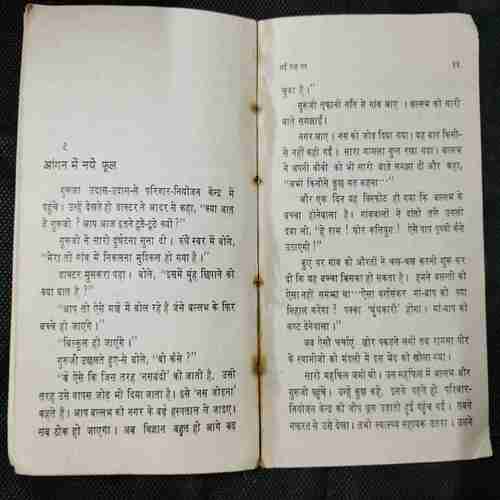 २
आंगन में नये फूल
गुरूजी उदास-उदास-से परिवार-नियोजन केन्द्र में
पहुंचे। उन्हें देखते ही डाक्टर ने आदर से कहा, "क्या बात
है गुरूजी? आप आज इतने टूटे-टूटे क्यों?"
गुरूजी ने सारी दुर्घटना सुना दी। रुंधे स्वर में बोले,
"मेरा तो गांव में निकलना मुश्किल हो गया है।"
डाक्टर मुसकरा पड़ा। बोले, "इसमें मुंह छिपाने की
क्या बात है?"
"आप तो ऐसे मज़े में बोल रहे हैं जैसे बल्लभ के फिर
बच्चे हो जाएंगे।"
"बिल्कुल हो जाएंगे।"
गुरूजी उछलते हुए-से बोले, "वो कैसे?"
"वे ऐसे कि जिस तरह 'नसबंदी' की जाती है, उसी
तरह उसे वापस जोड़ भी दिया जाता है। इसे 'नस जोड़ना'
कहते हैं। आप बल्लभ को नगर के बड़े हस्पताल ले जाइए।
सब ठीक हो जाएगा। अब विज्ञान बहुत ही आगे बढ़
११
चुका है।"
गुरूजी तूफानी गति से गांव आए। बल्लभ को सारी
बातें समझाईं।
नगर आए। नस को जोड़ दिया गया। यह बात किसी-
से नहीं कही गई। सारा मामला गुप्त रखा गया। बल्लभ
ने अपनी बीवी को भी सारी बातें समझा दीं और कहा,
"अभी किसीसे कुछ मत कहना—"
और एक दिन यह विस्फोट हो गया कि बल्लभ के
बच्चा होनेवाला है। गांववालों ने दांतों तले उंगली
दबा ली, "हे राम! घोर कलियुग! ऐसे पाप पृथ्वी कैसे
उठाएगी!"
कुएं पर गांव की औरतों ने चख-चख करनी शुरू कर
दी कि यह बच्चा किसका हो सकता है। हमने बसन्ती को
ऐसा नहीं समझा था— "ऐसा वर्णसंकर मां-बाप को क्या
निहाल करेगा! पक्का 'धुंधकारी' होगा। मां-बाप को
कष्ट देनेवाला।"
जब ऐसी चर्चाएं जोर पकड़ने लगीं तब रामसा पीर
के स्वामीजी की मंडली में इस भेद को खोला गया।
सारी महफिल जमी थी। उस महफिल में बल्लभ और
गुरूजी पहुंचे। उन्हें कुछ कहें, इससे पहले ही परिवार-
नियोजन केन्द्र की जीप धूल उड़ाती हुई पहुंच गई। सबने
नफरत से उसे देखा। तभी स्वास्थ्य सहायक उतरा। उसने